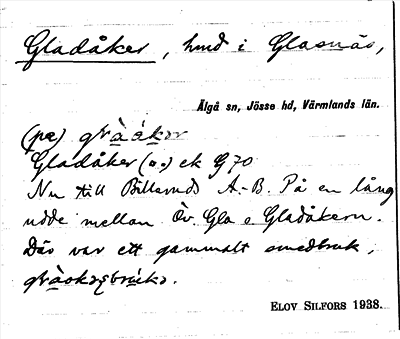 Gladåker, hmd i Glasnäs,
Älgå sn, Jösse hd, Värmlands län.
(pæ) glàákər
Gladåker (a.) ek G 70
Nu till Billeruds A.-B. På en lång
udde mellan Öv. Gla o Gladåkern.
Där var ett gammalt smedbruk,
ELOV SILFORS 1938.